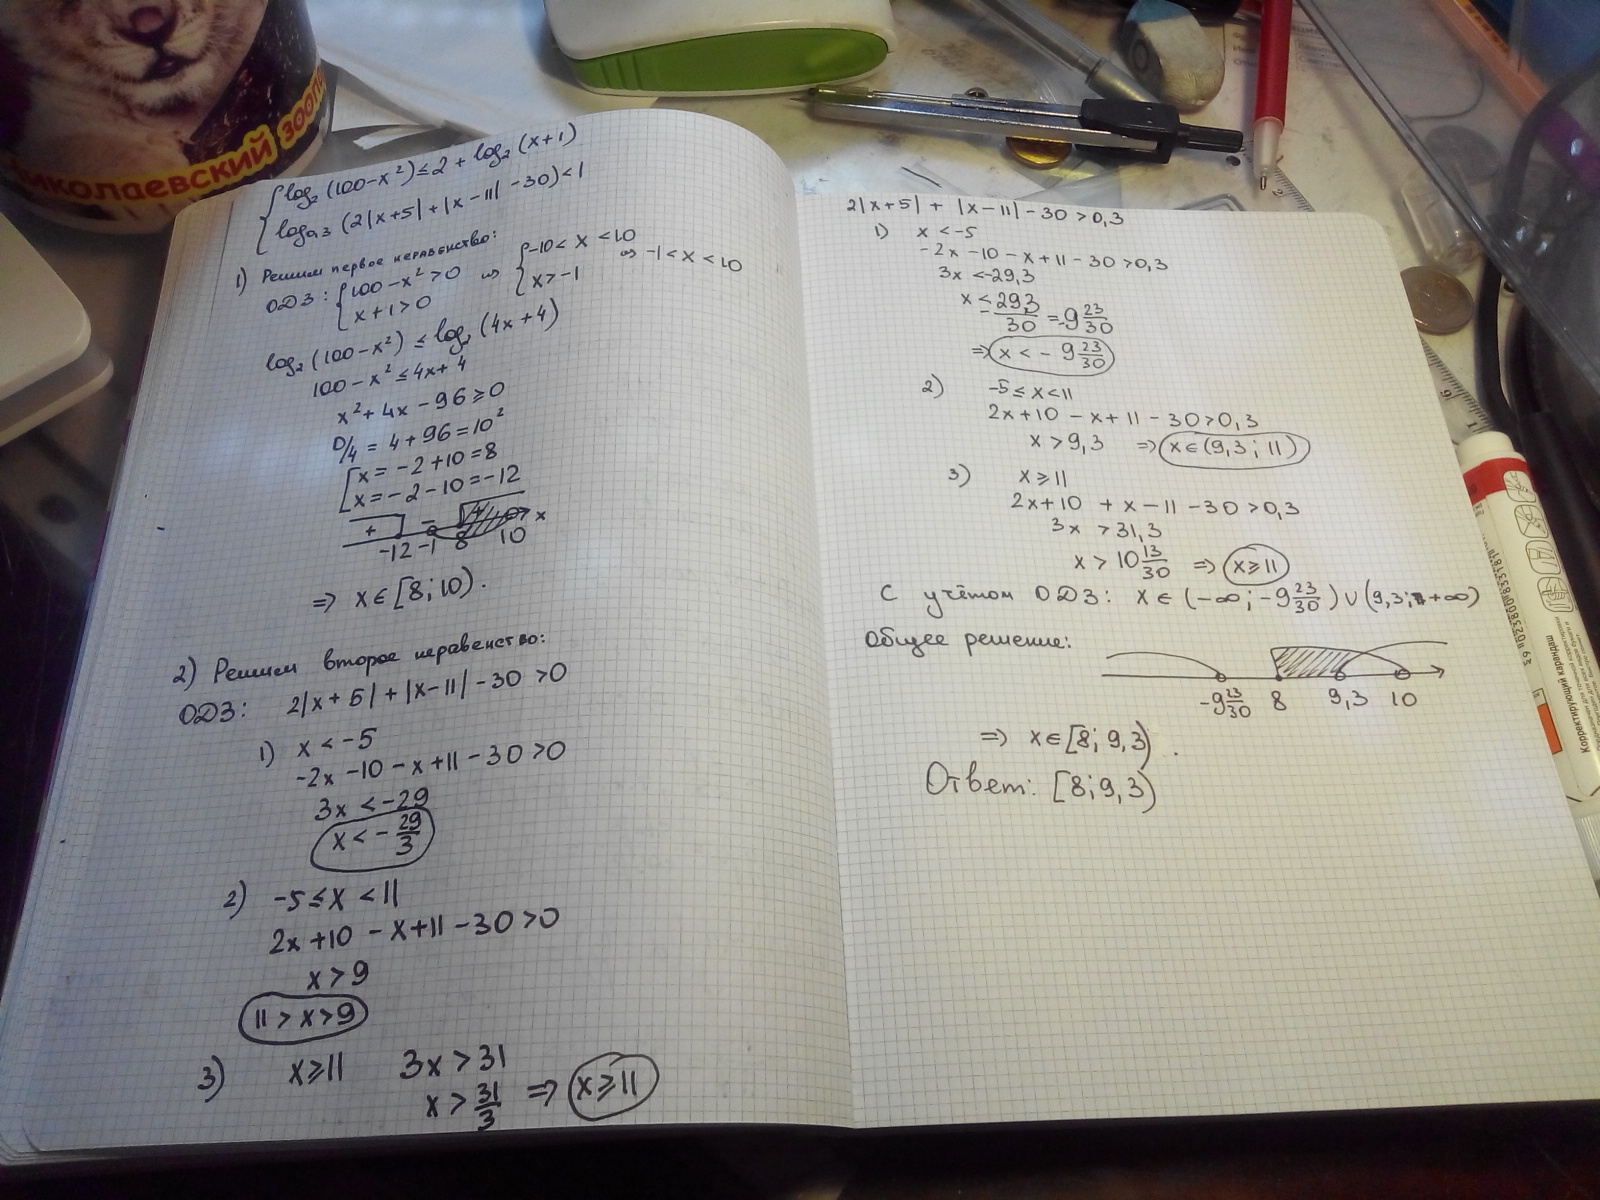 николаевский зооп
{ log₂(100-x²) ≤ 2 + log₂(x+1)
log₀,₃(2|x+5| + |x-11| -30) < 1
1) Решим первое неравенство:
ОДЗ: { 100-x² > 0 ⇒ { -10 < x < 10 ⇒ -1 < x < 10
x+1 > 0 x > -1
log₂(100-x²) ≤ log₂(4x+4)
100-x² ≤ 4x+4
x² + 4x - 96 ≥ 0
D/4 = 4 + 96 = 10²
[ x = -2+10 = 8
x = -2-10 = -12
+ - + x
-12 -1 8 10
⇒ x ∈ [8; 10).
2) Решим второе неравенство:
ОДЗ: 2|x+5| + |x-11| - 30 > 0
1) x < -5
-2x -10 - x + 11 - 30 > 0
3x < -29
x < - 29/3
2) -5 ≤ x < 11
2x + 10 - x + 11 - 30 > 0
x > 9
11 > x > 9
3) x ≥ 11 3x > 31
x > 31/3 ⇒ x ≥ 11
2|x+5| + |x-11| - 30 > 0,3
1) x < -5
-2x - 10 - x + 11 - 30 > 0,3
3x < -29,3
x < - 293/30 = -9 23/30
⇒ x < - 9 23/30
2) -5 ≤ x < 11
2x + 10 - x + 11 - 30 > 0,3
x > 9,3 ⇒ x ∈ (9,3; 11)
3) x ≥ 11
2x + 10 + x - 11 - 30 > 0,3
3x > 31,3
x > 10 13/30 ⇒ x ≥ 11
С учётом ОДЗ: x ∈ (-∞; -9 23/30) ∪ (9,3; +∞)
Общее решение:
-9 23/30 8 9,3 10
⇒ x ∈ [8; 9,3).
Ответ: [8; 9,3)
Корректирующий карандаш